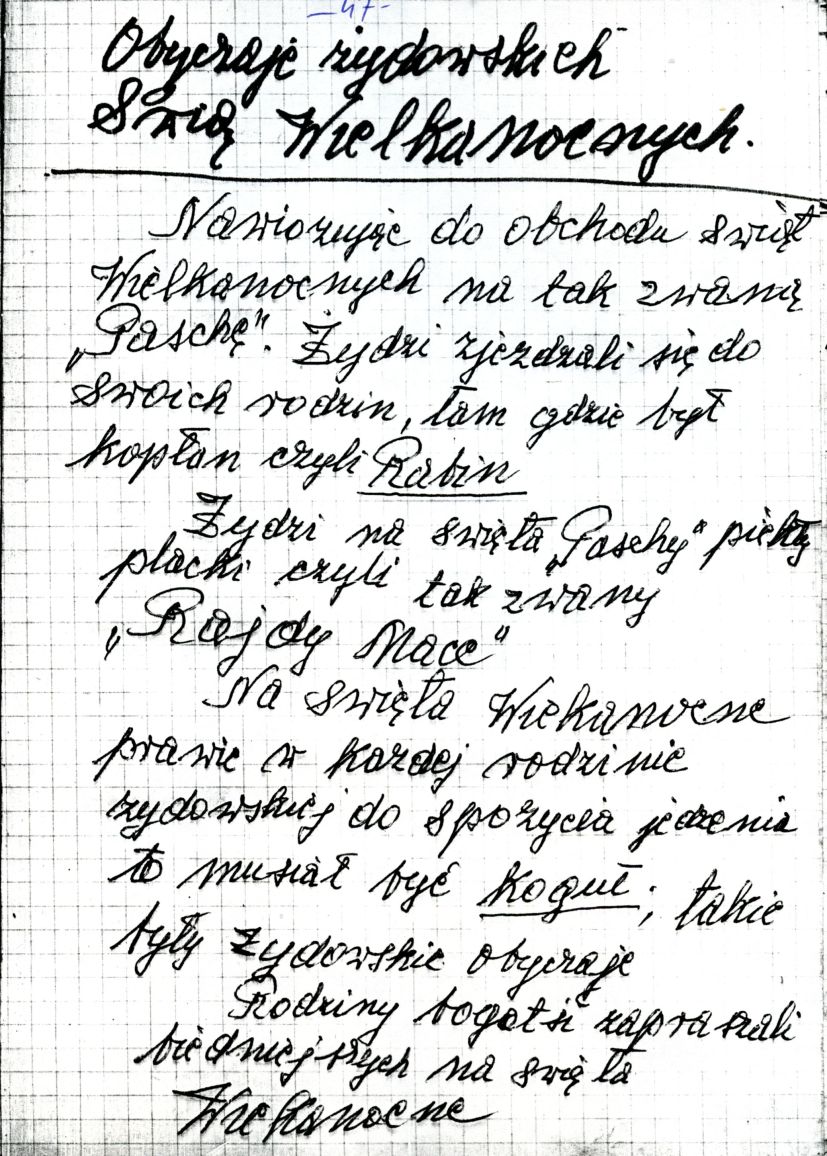 -47-
Obyczaje żydowskich
Świą Wielkanocnych.
Nawiozując do obchodu świąt
Wielkanocnych na tak zwaną
„Paschę". Żydzi zjezdzali się do
swoich rodzin, tam gdzie był
kopłan czyli Rabin
Żydzi na święta „Paschy" piekły
placki czyli tak zwany
„Rajdy Mace"
Na święta Wiekanocne
prawie w kazdej rodzinie
zydowskiej do spozycia jedzenia
to musiał być kogut; takie
były zydowskie obyczaje
Rodziny bogatsi zapraszali
biedniejszych na święta
Wiekanocne